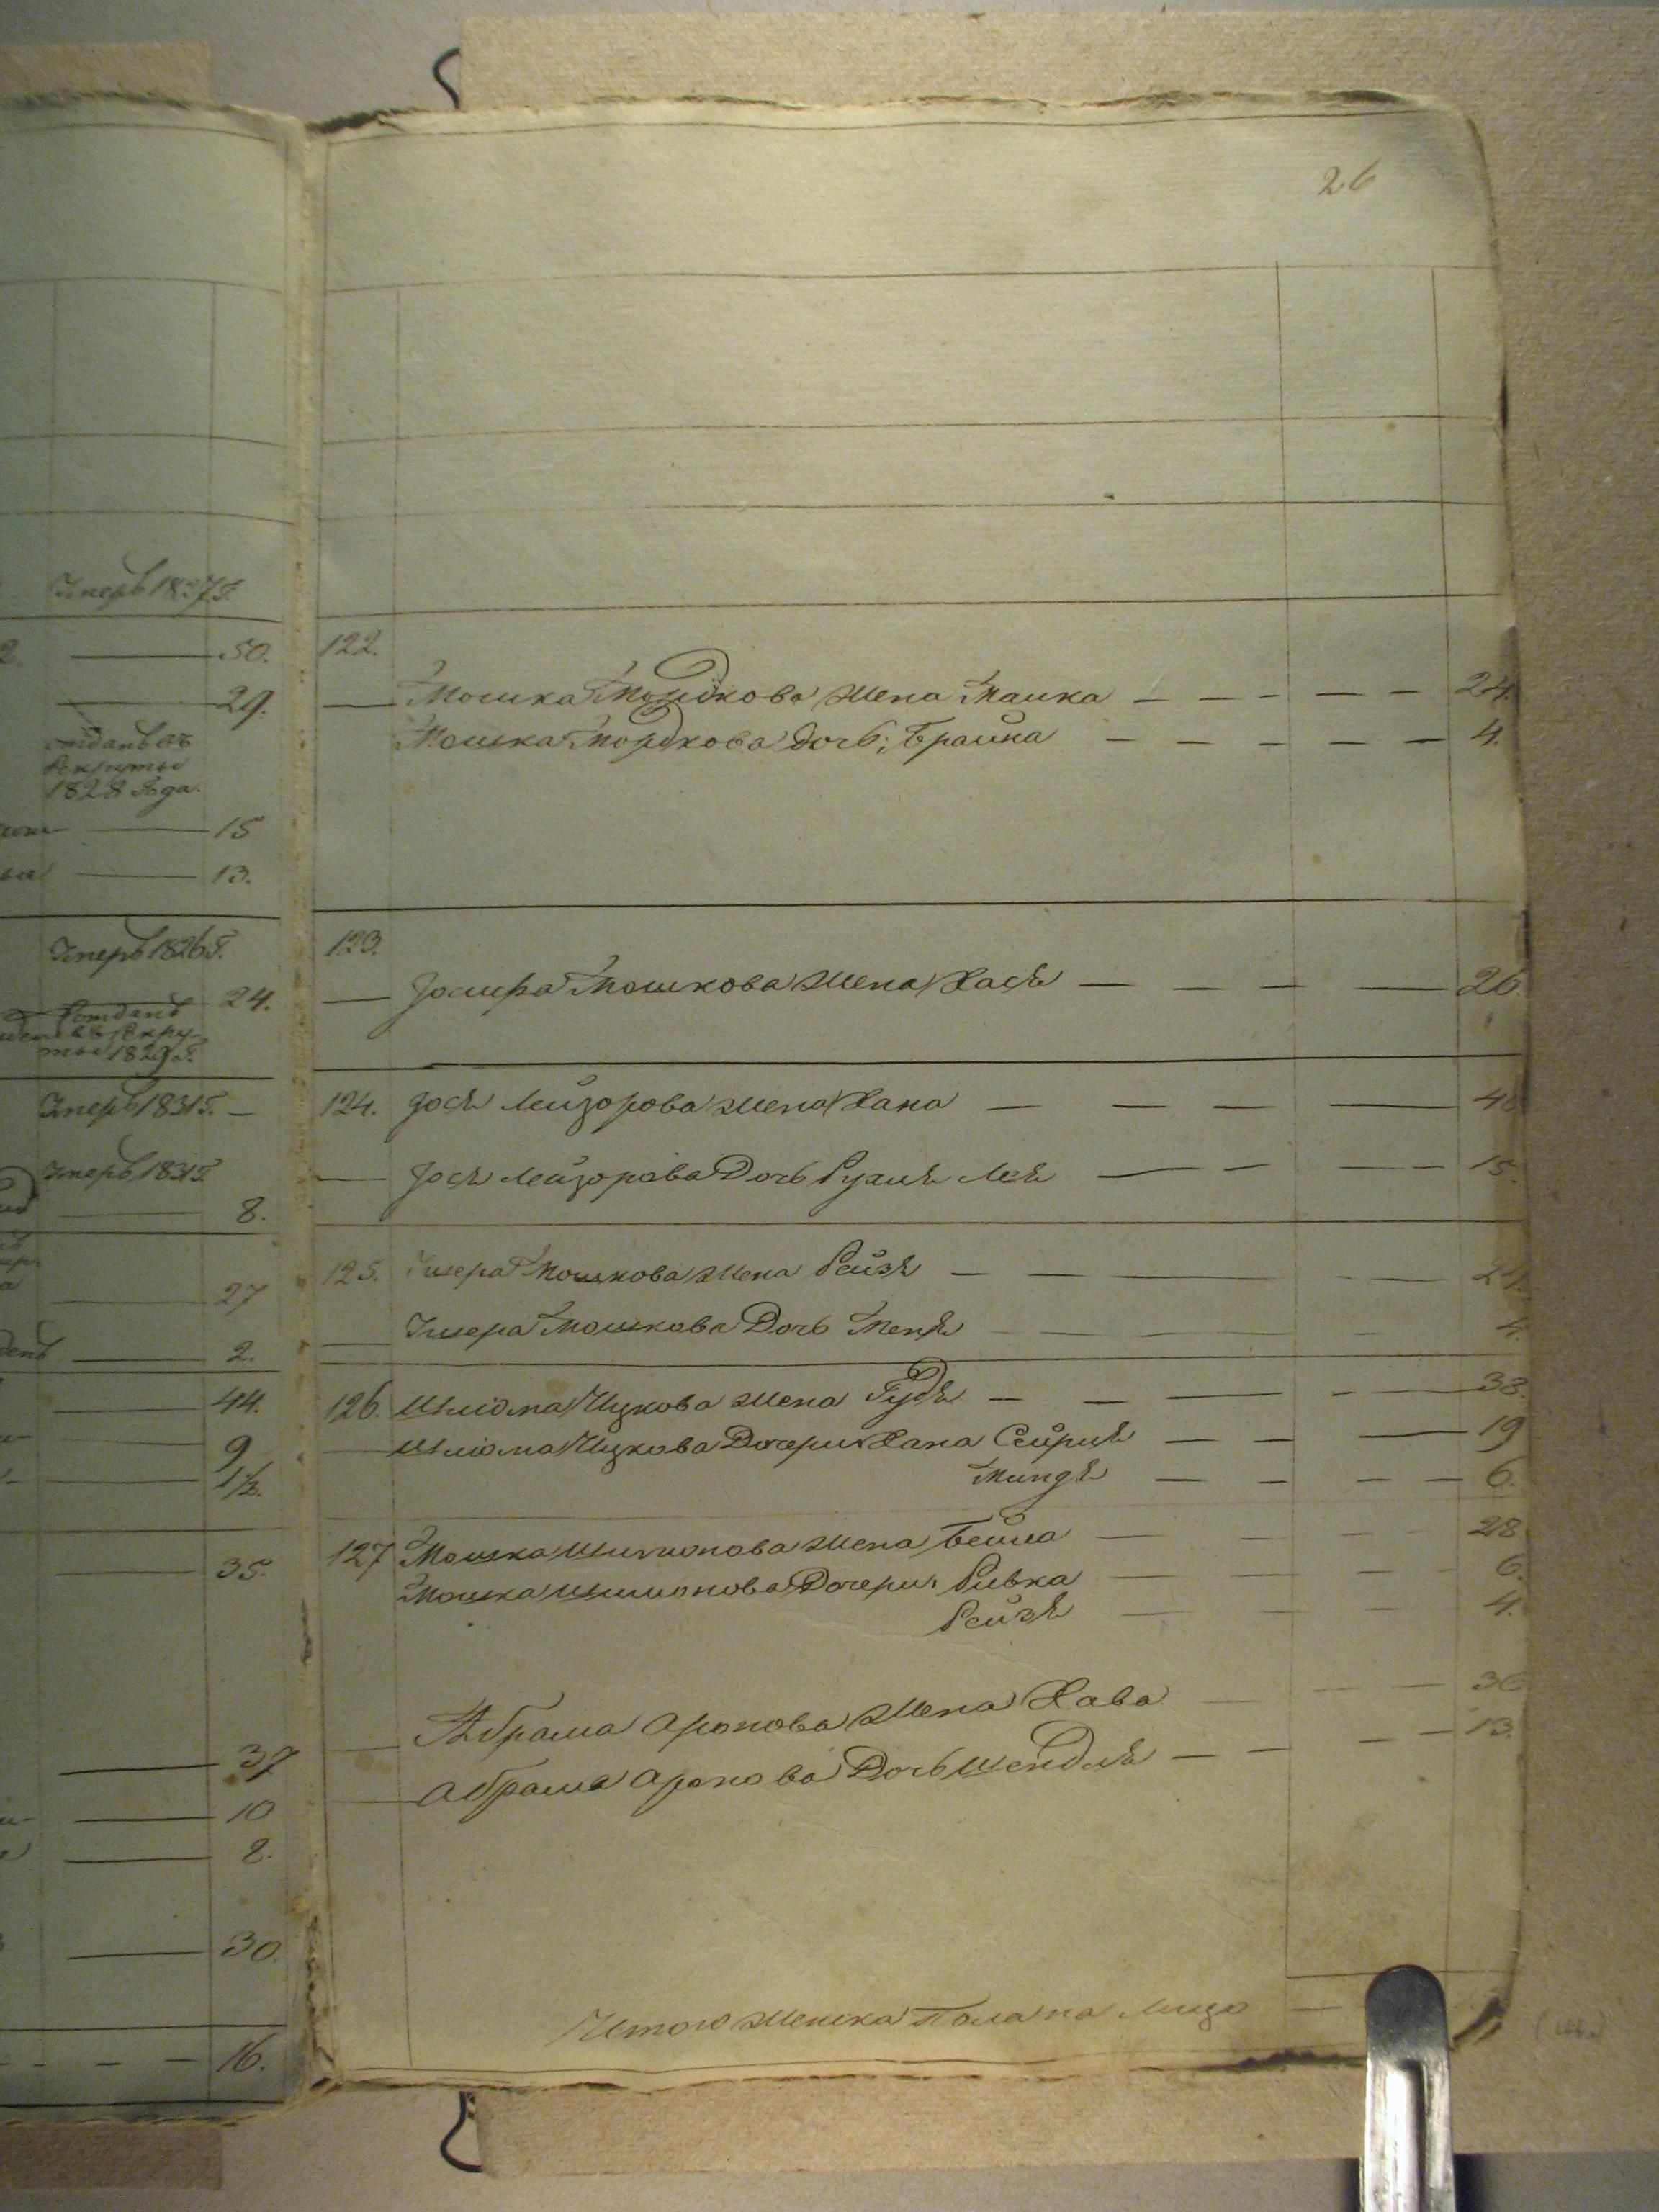 26
Умеръ 1837 г.
50.
29.
отданъ въ
рекруты
1828 Года.
15
13.
Умеръ 1826 г.
24.
отданъ
въ рекру-
ты 1829 г.
Умеръ 1831 г. —
Умеръ 1831 г.
8.
27
2.
44.
9
1/2.
35.
37
10
8.
30.
16.
122.
Мошка Мордкова жена Малка — — — — — 24.
Мошка Мордкова дочь; Брайна — — — — — 4.
123.
Мошкова жена Хася — — — — 26.
124. Лейзорова жена Хана — — — — 40
Лейзорова Дочь Рухля Лея — — — — 15.
125. Мошкова жена Рейзя — — — — 24.
Мошкова Дочь — — — — 4.
126. Шліома Ицкова жена Гудя — — — — — 38.
Шліома Ицкова Дочери Хана Сейрля — — — 19
Миндя — — — — 6.
127 Мошка Шимонова жена Бейла — — — — 28
Мошка Шимонова Дочери Ривка — — — — 6.
Рейзя — — — — 4.
Абрама Аронова жена Хава — — — 36
Абрама Аронова Дочь Шендля — — — — 13.
Итого женска Пола на Лицо —